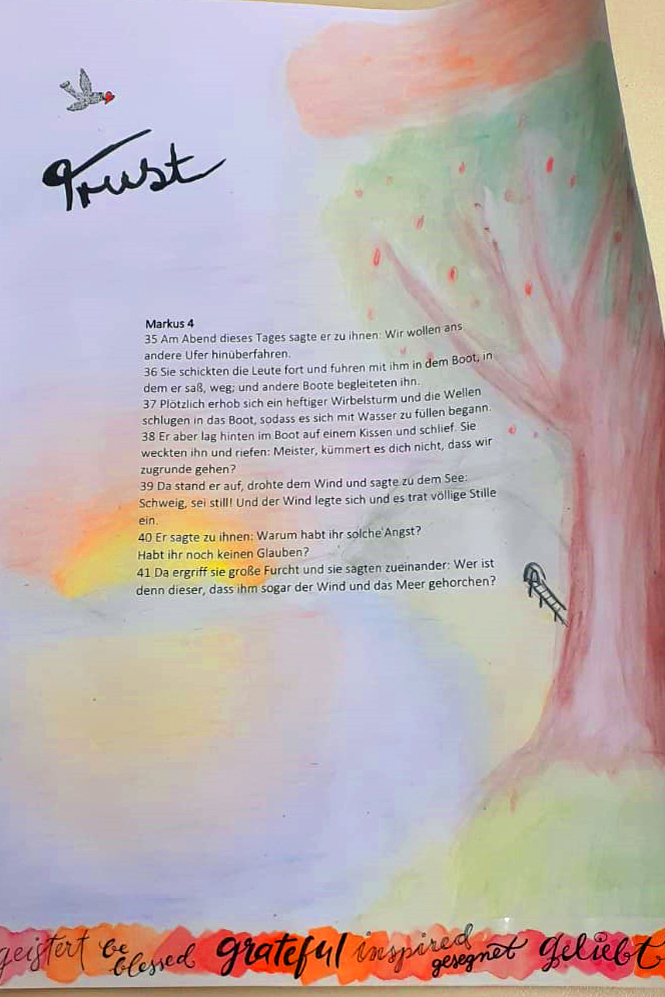 Trust
Markus 4
35 Am Abend dieses Tages sagte er zu ihnen: Wir wollen ans
andere Ufer hinüberfahren.
36 Sie schickten die Leute fort und fuhren mit ihm in dem Boot, in
dem er saß, weg; und andere Boote begleiteten ihn.
37 Plötzlich erhob sich ein heftiger Wirbelsturm und die Wellen
schlugen in das Boot, sodass es sich mit Wasser zu füllen begann.
38 Er aber lag hinten im Boot auf einem Kissen und schlief. Sie
weckten ihn und riefen: Meister, kümmert es dich nicht, dass wir
zugrunde gehen?
39 Da stand er auf, drohte dem Wind und sagte zu dem See:
Schweig, sei still! Und der Wind legte sich und es trat völlige Stille
ein.
40 Er sagte zu ihnen: Warum habt ihr solche Angst?
Habt ihr noch keinen Glauben?
41 Da ergriff sie große Furcht und sie sagten zueinander: Wer ist
denn dieser, dass ihm sogar der Wind und das Meer gehorchen?
geistert be blessed grateful inspired gesegnet geliebt